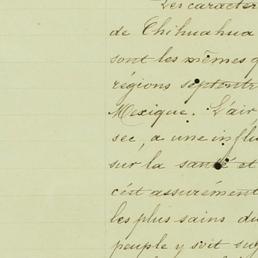 Les caractèr
de Chihuahua
sont les mêmes q
régions septentr
Mexique. L'air
sec, a une influ
sur la santé et
c'est assurément
les plus sains du
peuple y soit suj